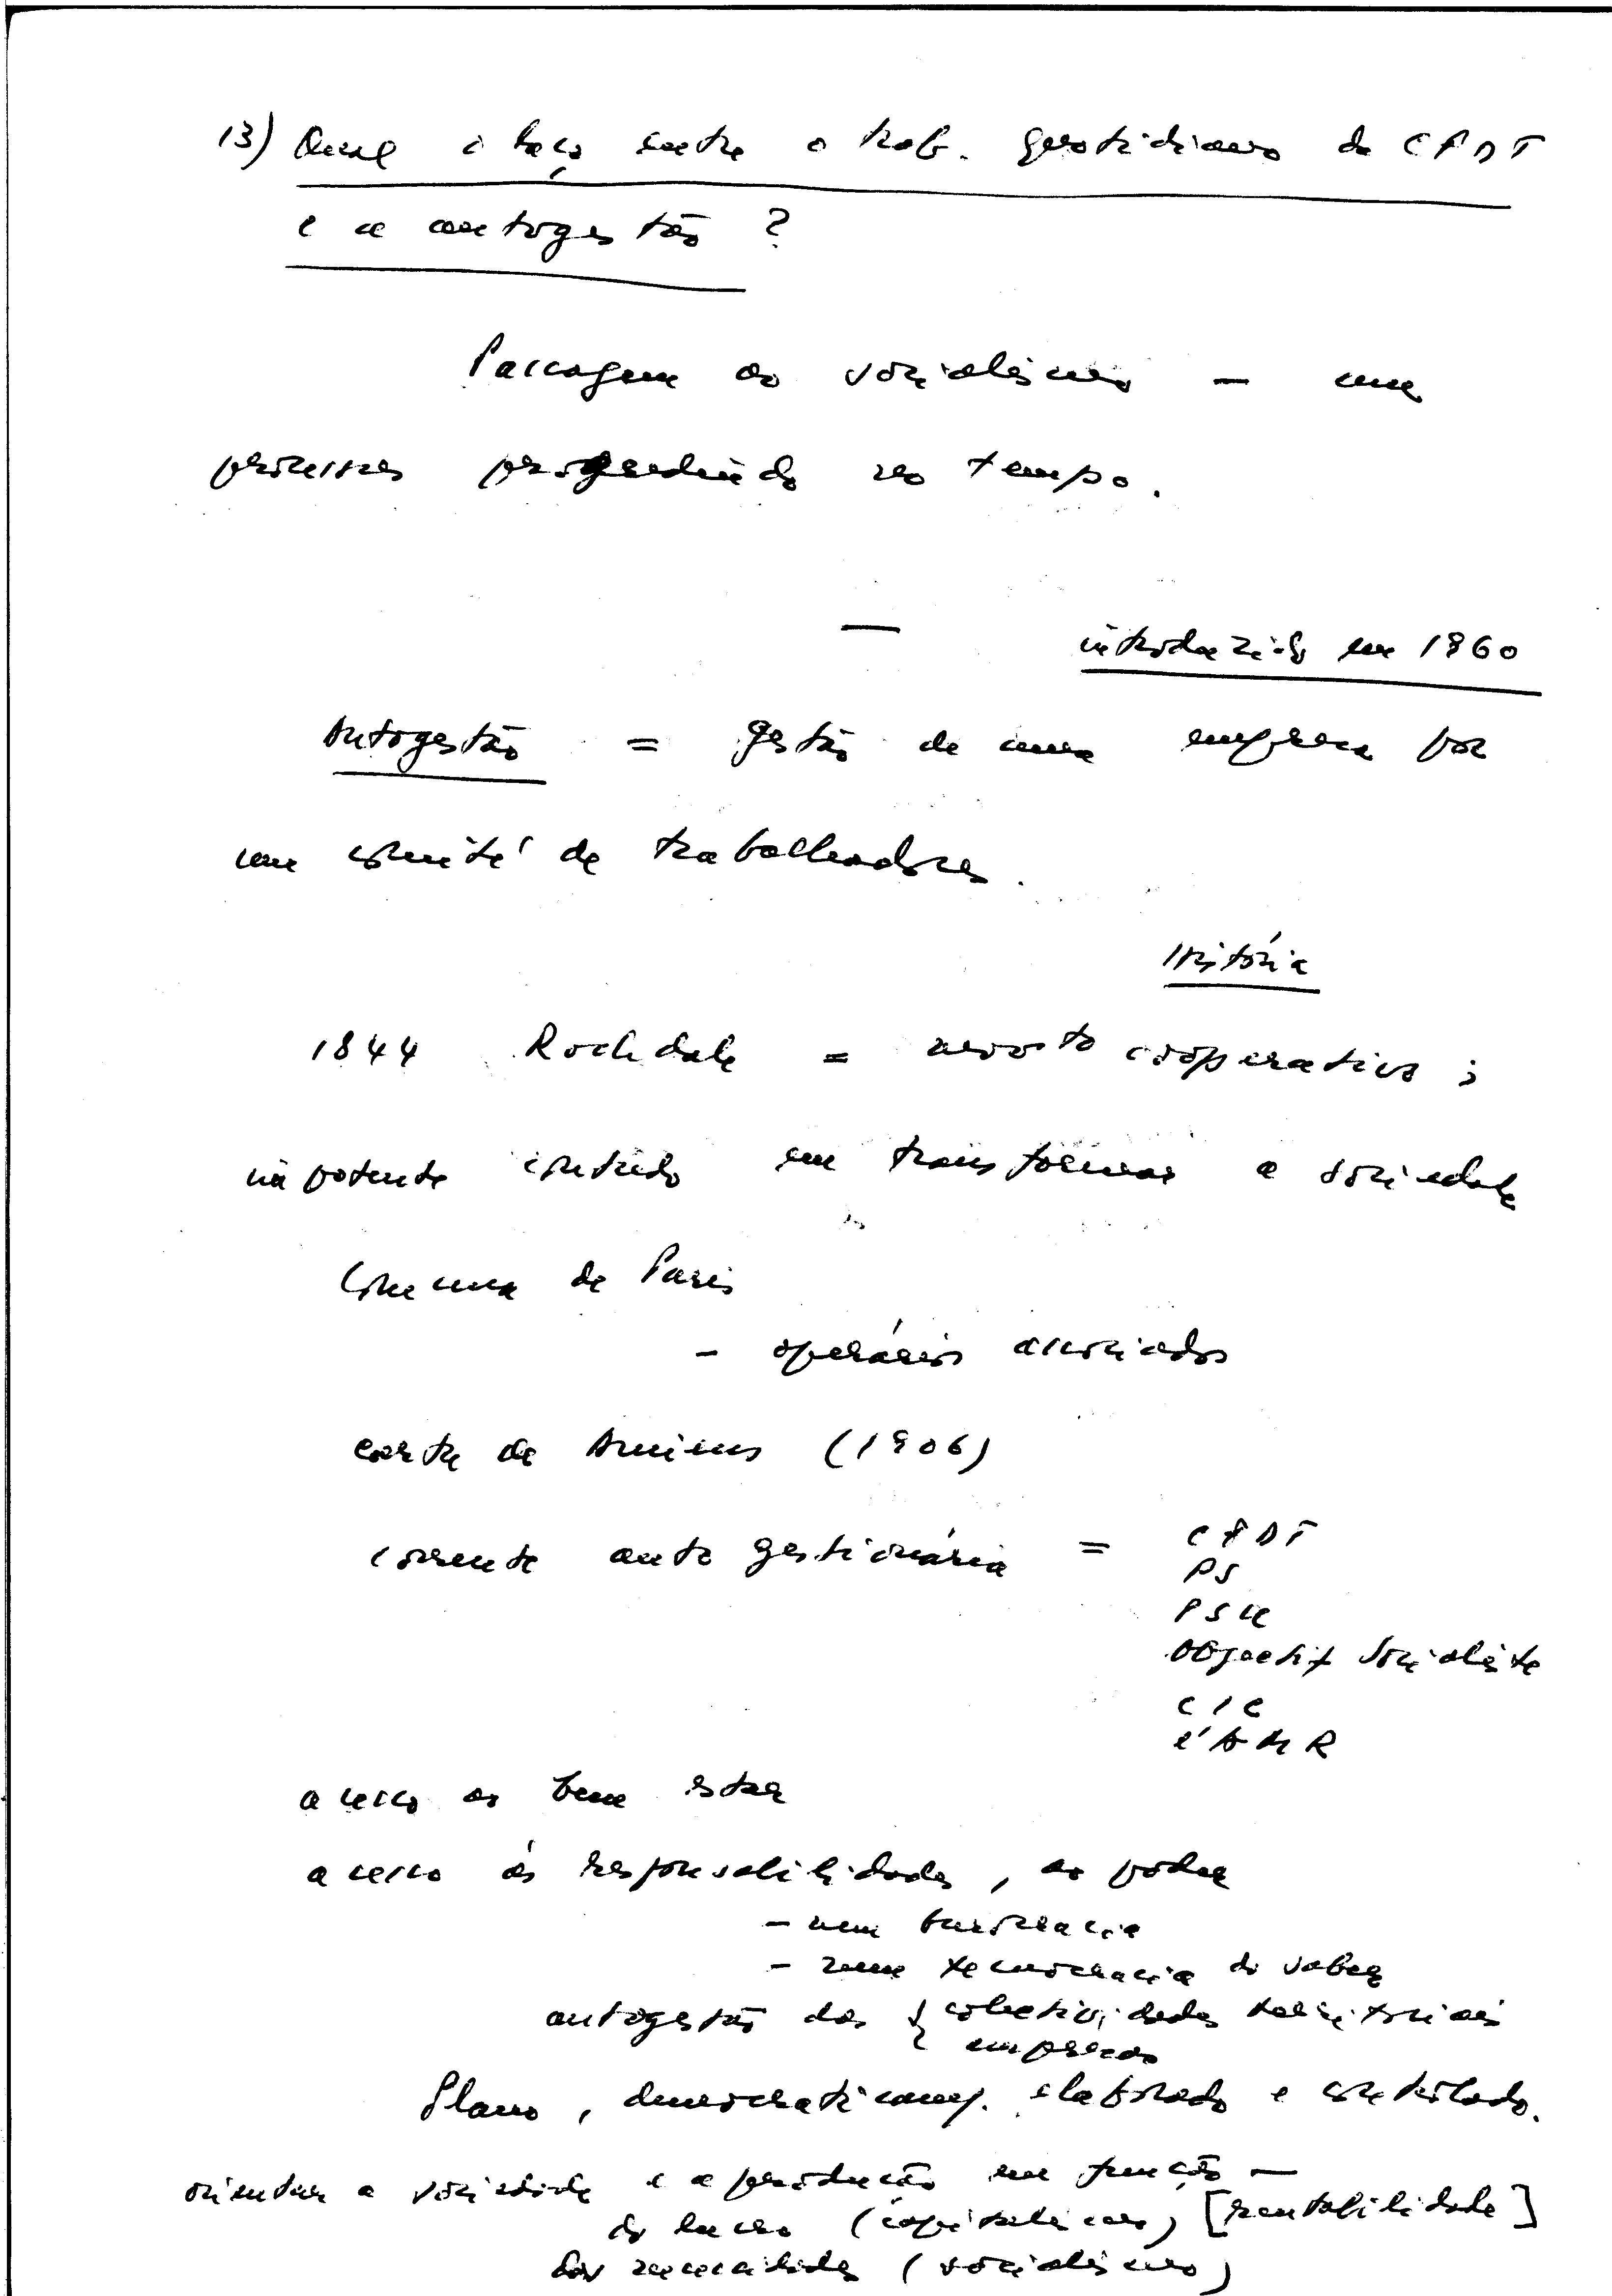 13) Qual o laço entre o trab. quotidiano da CFDT
e a autogestão ?
Passagem ao socialismo — um
processo progredindo no tempo.
—
introduzido em 1960
Autogestão = gestão de uma empresa por
um comité de trabalhadores.
História
1844 Rochdale = movto cooperativo ;
impotente contudo em transformar a sociedade
Comuna de Paris
- operários associados
carta de Amiens (1906)
corrente autogestionária = CFDT
PS
PSU
Objectif Socialiste
CIC
l'AMR
acesso ao bem estar
acesso às responsabilidades, ao poder
- nem burocracia
- nem tecnocracia do saber
autogestão das { colectividades territoriais
empresas
Plano, democraticam. elaborado e controlado.
orientar a sociedade e a produção em função —
do lucro (capitalismo) [rentabilidade]
das necessidades (socialismo)